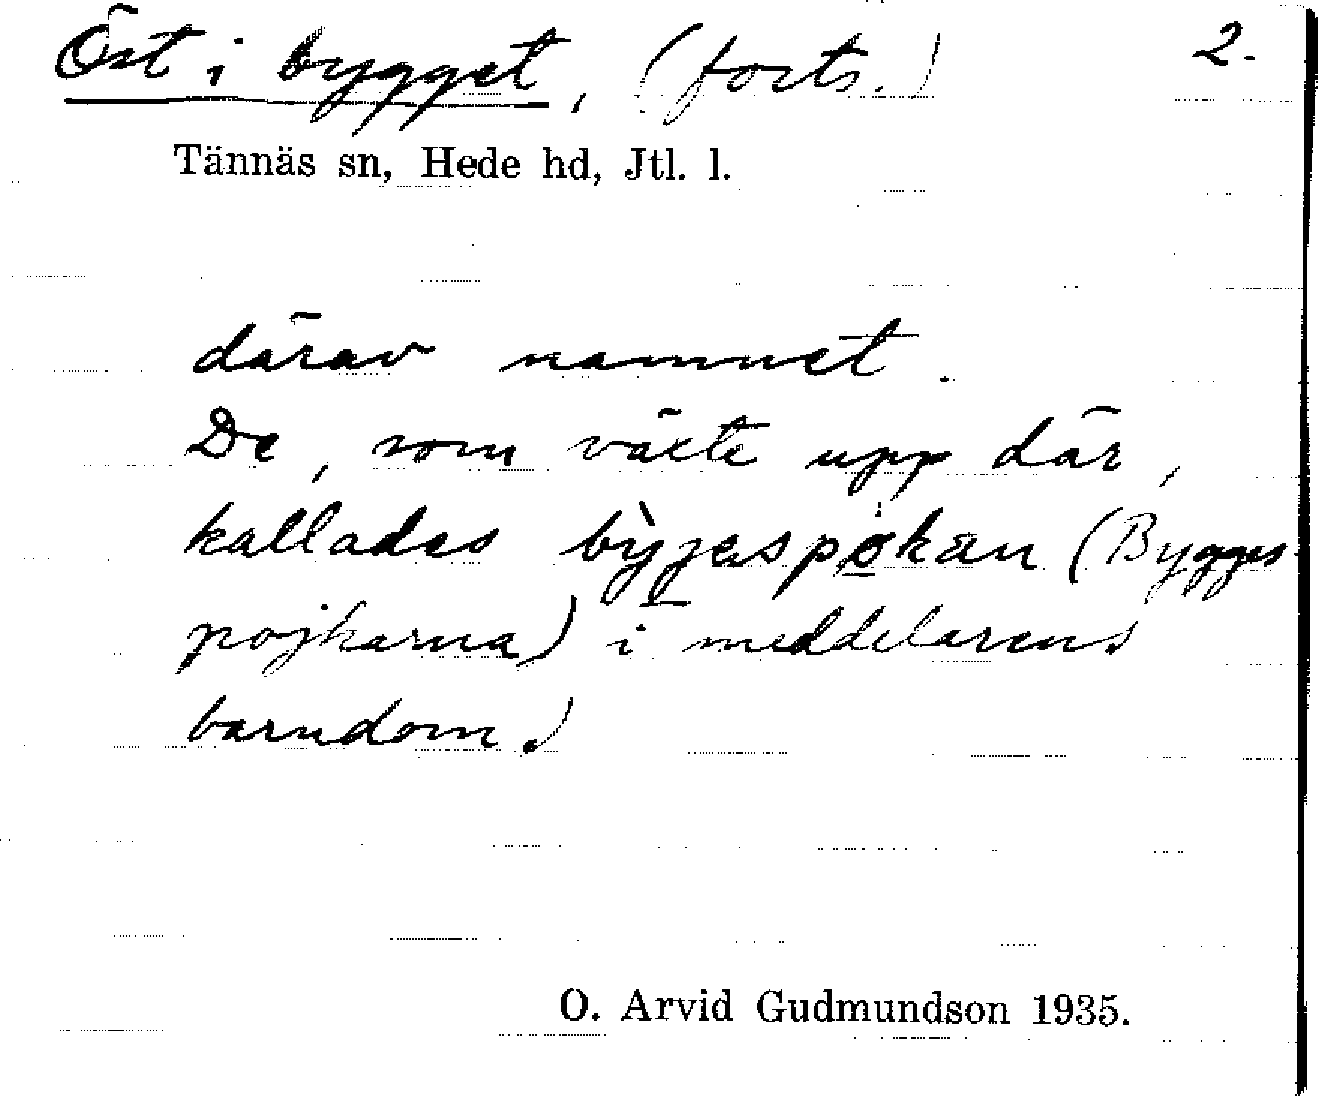 Öst i bygget, (forts.) 2.
Tännäs sn, Hede hd, Jtl. l.
därav namnet.
De, som växte upp där,
kallades bỳjespökan (Bygges-
pojkarna) i meddelarens
barndom.)
O. Arvid Gudmundson 1935.